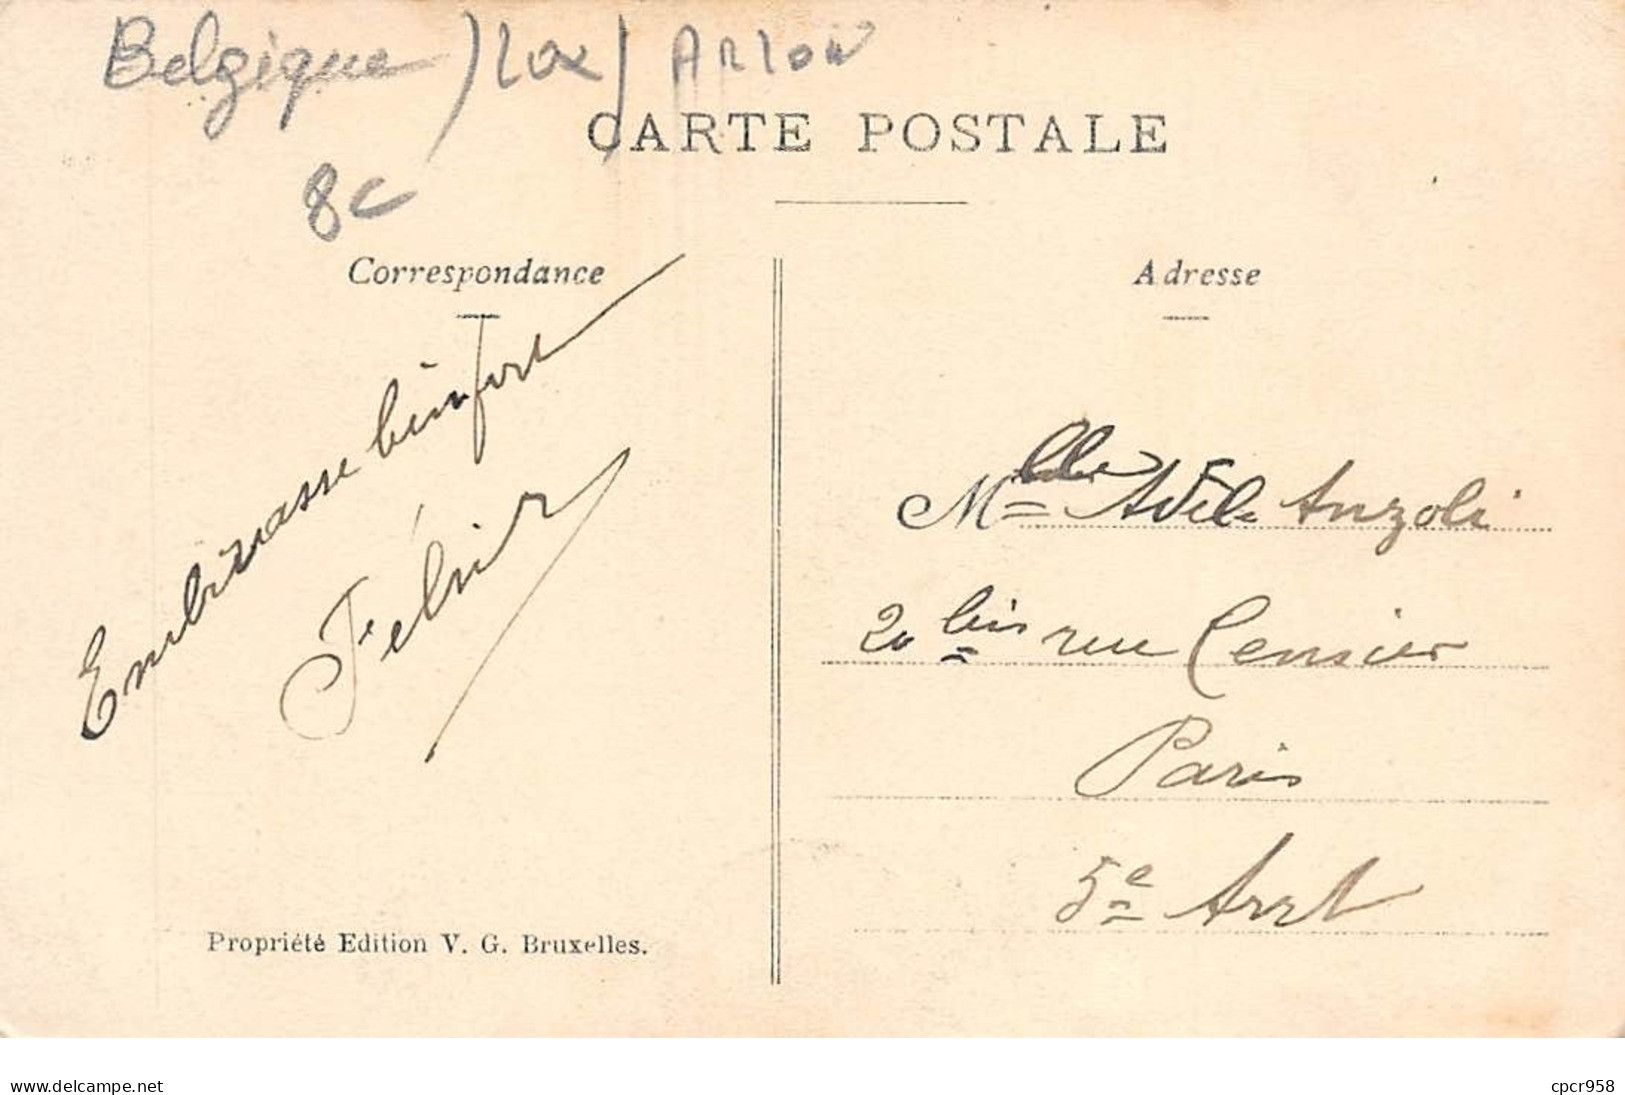 Belgique )Lux/ ARLON
CARTE POSTALE
8c
Correspondance
Embrasse bien fort
Félnir
Propriété Edition V. G. Bruxelles.
Adresse
Mlle Adèle Anzoli
20 bis rue Censier
Paris
5e Arrt
www.delcampe.net
cpcr958